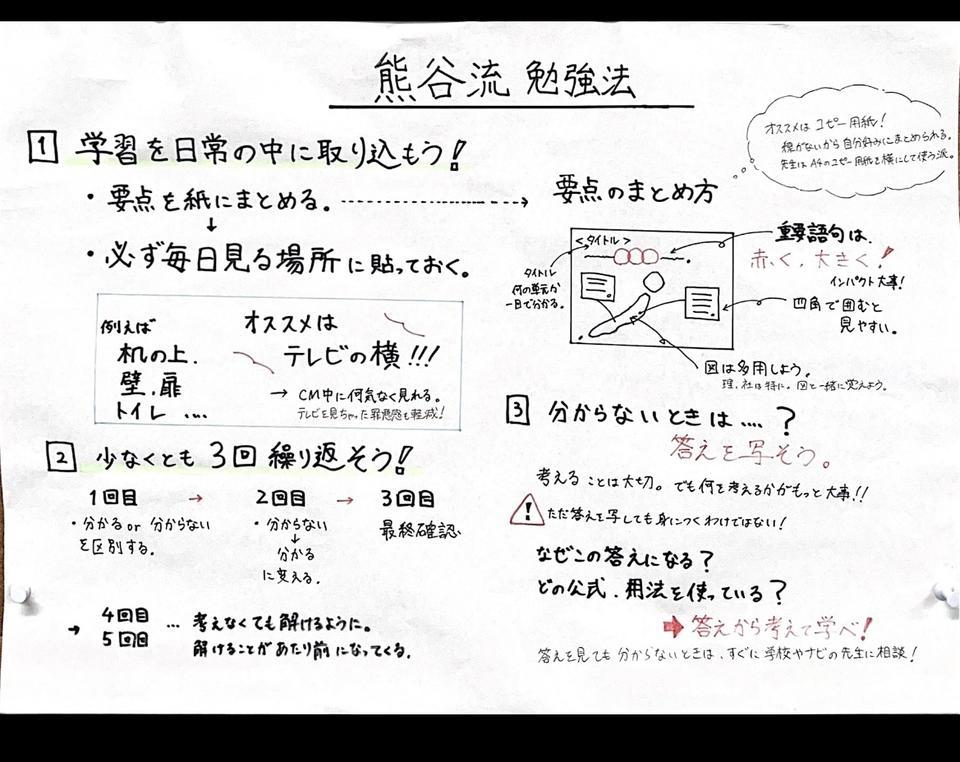 熊谷流 勉強法
1 学習を日常の中に取り込もう!
・要点を紙にまとめる。
↓
・必ず毎日見る場所に貼っておく。
例えば
机の上.
壁.扉
トイレ ....
オススメは
テレビの横!!!
→ CM中に何気なく見れる。
テレビを見ちゃった罪悪感も軽減!
2 少なくとも3回繰り返そう!
1回目 → 2回目 → 3回目
・分かる or 分からない
を区別する.
・分からない
↓
分かる
に変える.
最終確認
→ 4回目
5回目
... 考えなくても解けるように。
解けることがあたり前になってくる.
オススメはコピー用紙!
線がないから自分好みにまとめられる.
先生はA4のコピー用紙を横にして使う派。
要点のまとめ方
<タイトル>
タイトル
何の単元か
一目で分かる.
重要語句は.
赤く,大きく!
インパクト大事!
四角で囲むと
見やすい。
図は多用しよう.
理.社は特に. 図と一緒に覚えよう.
3 分からないときは....?
答えを写そう。
考えることは大切。でも何を考えるかがもっと大事!!
! ただ答えを写しても身につくわけではない!
なぜこの答えになる?
どの公式.用法を使っている?
➡ 答えから考えて学べ!
答えを見ても分からないときは、すぐに学校やナビの先生に相談!